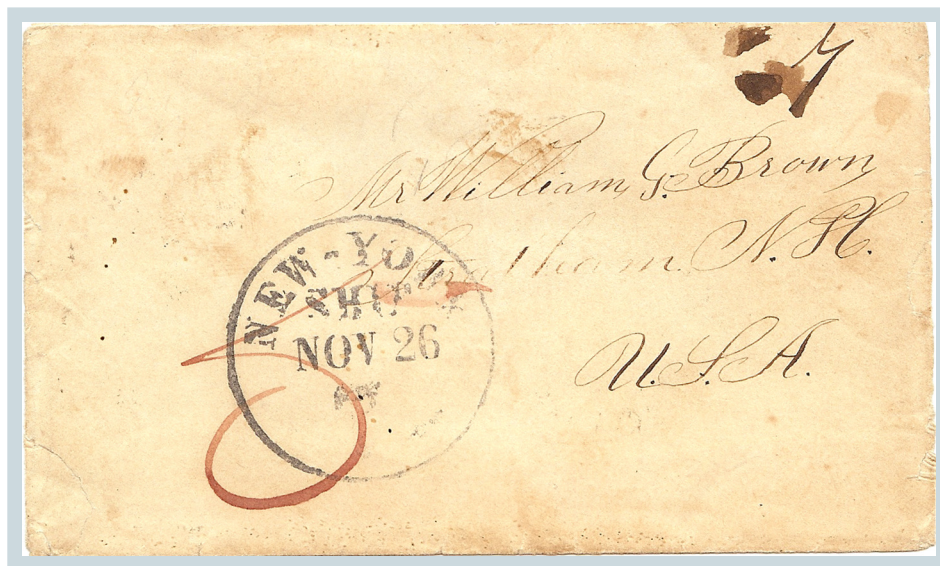 Mr William G. Brown
Stratham N.H.
U.S.A.
NEW-YORK
SHIP
NOV 26